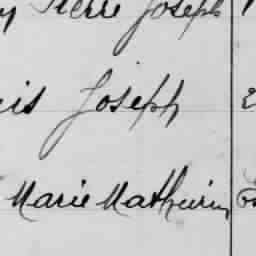 Pierre Joseph
is Joseph
Marie Mathurin